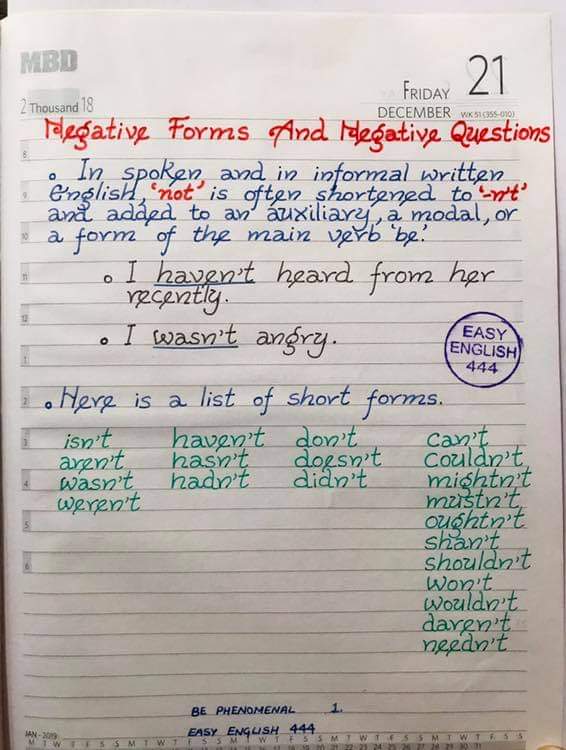 MBD
21
FRIDAY
2 Thousand 18
DECEMBER WK 51 (355-010)
Negative Forms And Negative Questions
8
• In spoken and in informal written
9 English, 'not' is often shortened to '-n't'
and added to an auxiliary, a modal, or
10 a form of the main verb 'be'.
11 • I haven't heard from her
recently.
12
• I wasn't angry.
1
EASY
ENGLISH
444
2 • Here is a list of short forms.
3 isn't haven't don't can't
aren't hasn't doesn't couldn't
4 wasn't hadn't didn't mightn't
weren't mustn't
5 oughtn't
shan't
6 shouldn't
won't
wouldn't
daren't
needn't
BE PHENOMENAL 1.
EASY ENGLISH 444
JAN - 2019
M T W T F S S M T W T F S S M T W T F S S M T W T F S S M T W T